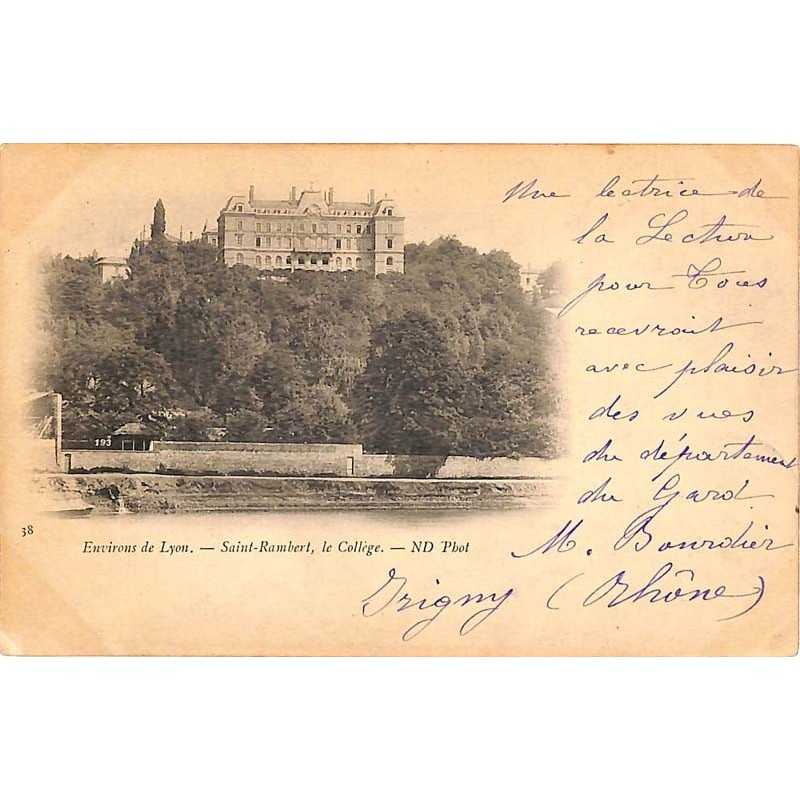 Une lectrice de
la Lecture
pour Tous
recevrait
avec plaisir
des vues
du département
du Gard
M. Bourdier
Grigny (Rhône)
193
38
Environs de Lyon. — Saint-Rambert, le Collège. — ND Phot